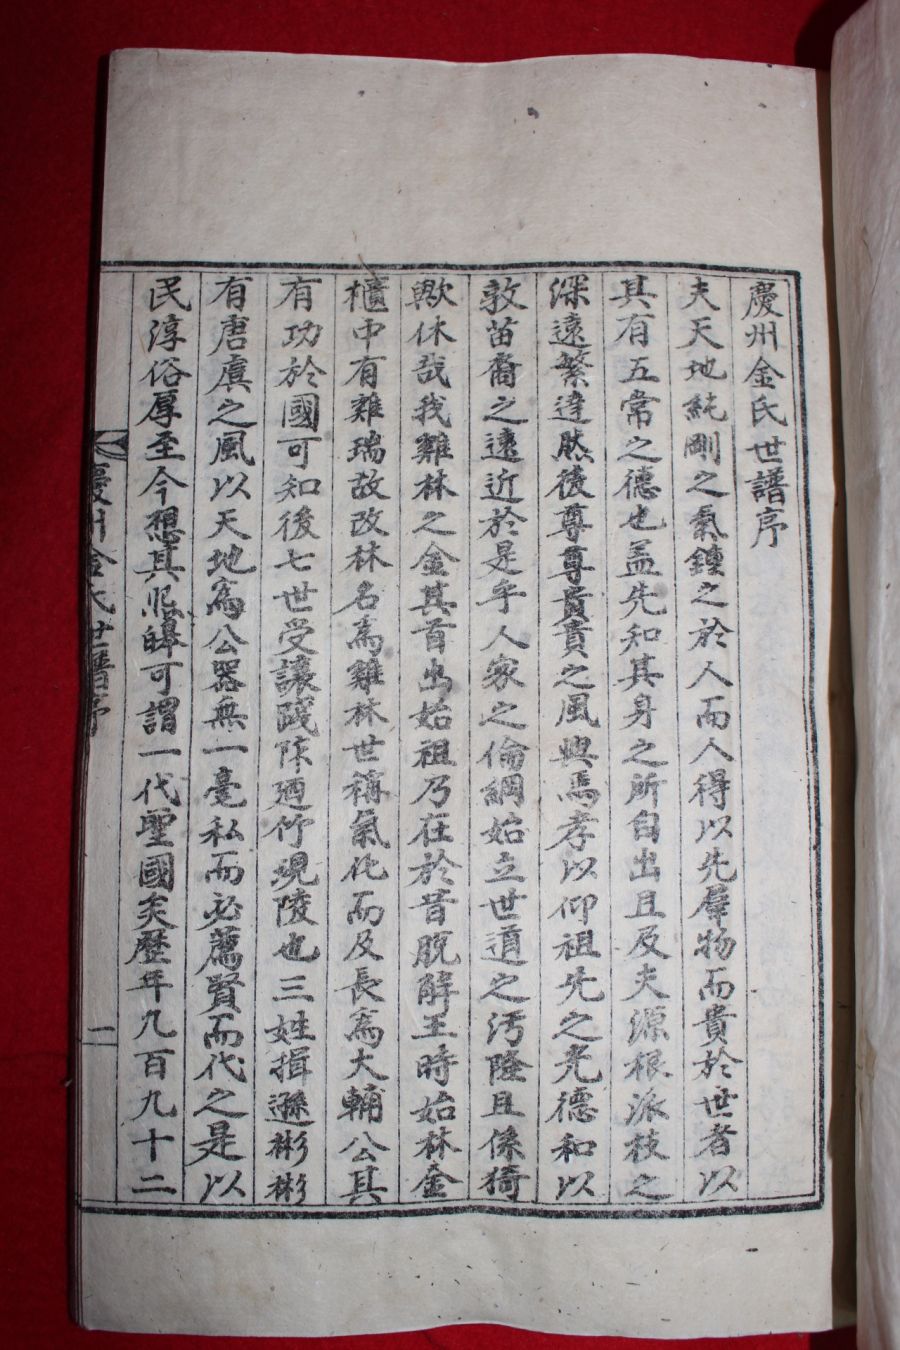 慶州金氏世譜序
夫天地純剛之氣鍾之於人而人得以先羣物而貴於世者以
其有五常之德也盖先知其身之所自出且及夫源根派枝之
深遠繁達然後尊尊貴貴之風興焉孝以仰祖先之光德和以
敦苗裔之遠近於是乎人家之倫綱始立世道之汚隆且係猗
歟休哉我雞林之金其首出始祖乃在於昔脫解王時始林金
櫃中有雞瑞故改林名爲雞林世稱氣化而及長爲大輔公其
有功於國可知後七世受讓踐阼廼竹現陵也三姓揖遜彬彬
有唐虞之風以天地爲公器無一毫私而必薦賢而代之是以
民淳俗厚至今想其熙皞可謂一代聖國矣歷年九百九十二
慶州金氏世譜序
一